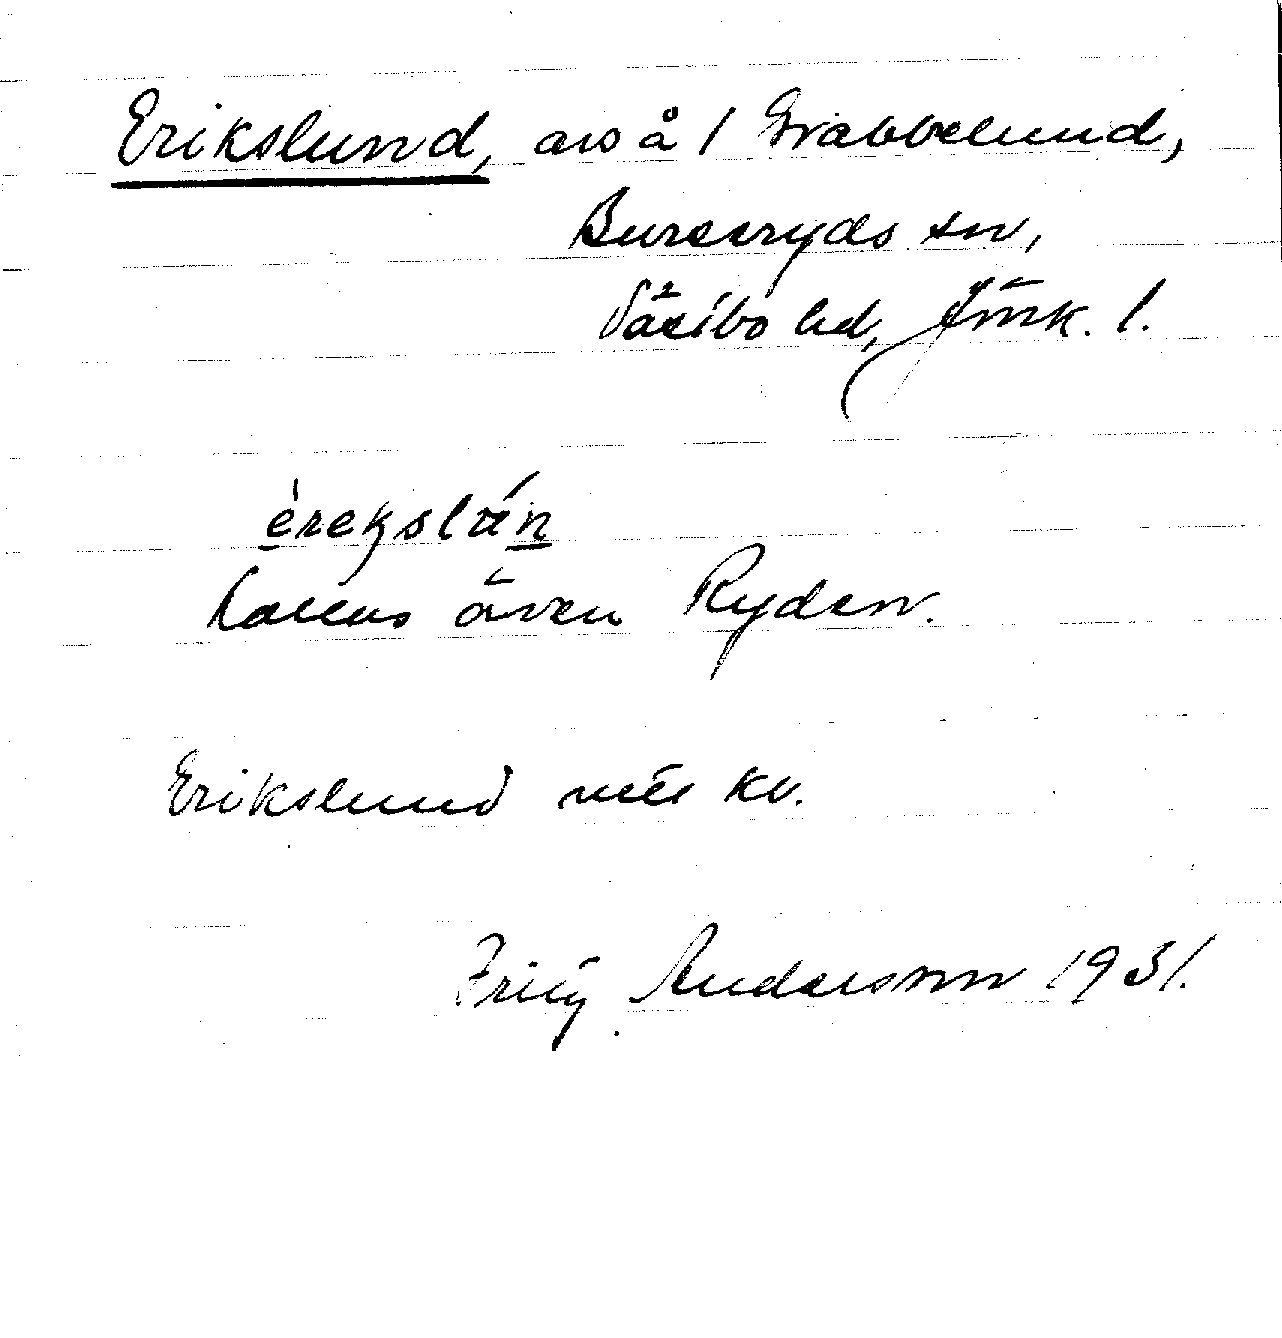 Erikslund, avs å 1 Grabbelund,
Burseryds sn,
Västbo hd, Jönk. l.
èrekslán
kallas även Ryden.
Erikslund
Andersson 1931.